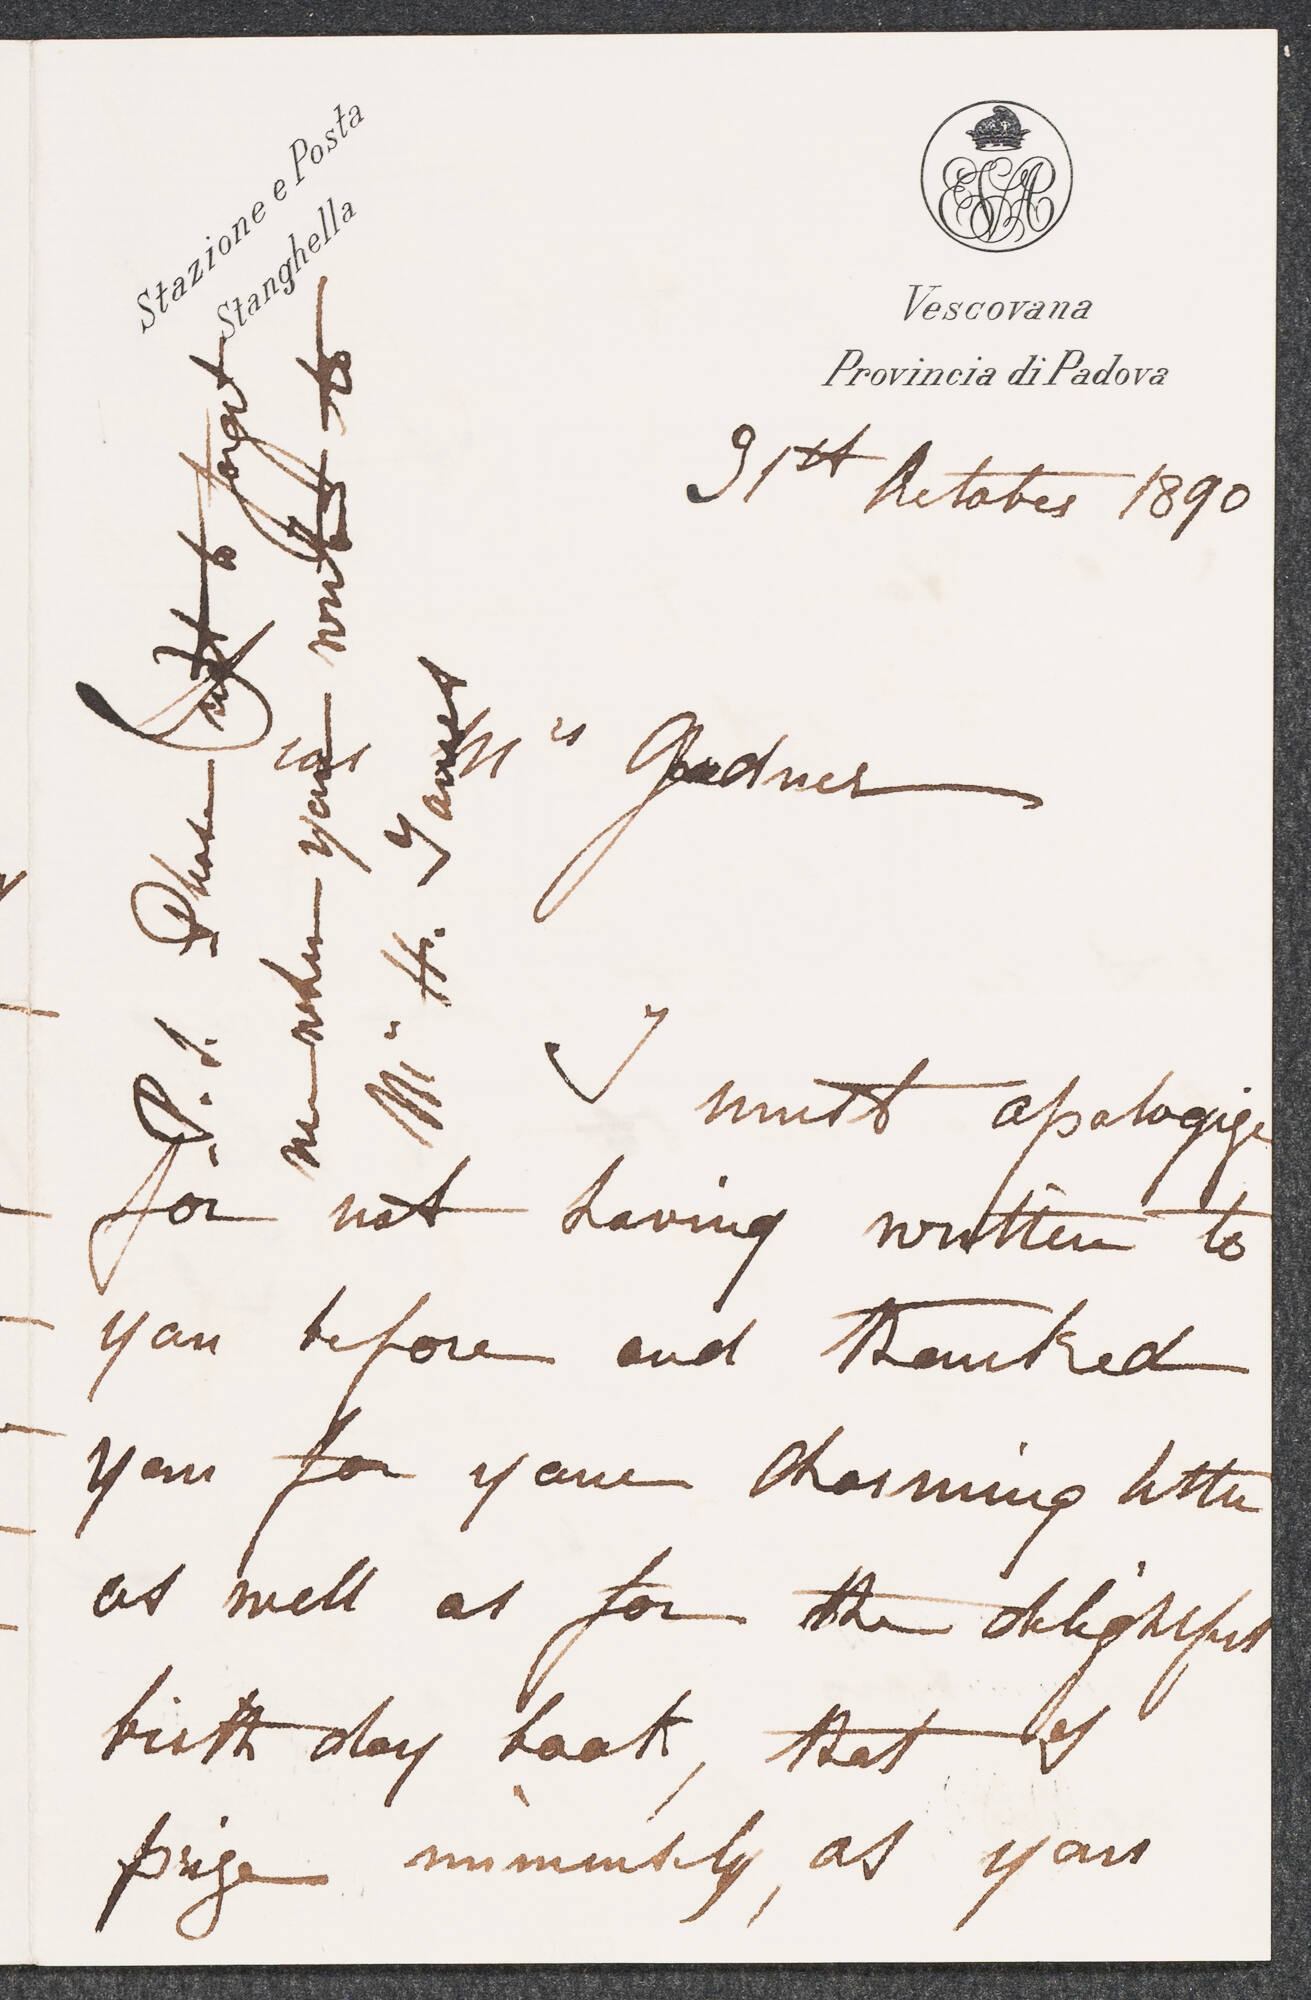 Stazione e Posta
Stanghella
Vescovana
Provincia di Padova
31st October 1890
Dear Mrs Gardner
I
must apologize
for not having written to
you before and thanked
you for your charming letter
as well as for the delightful
birth day book, that I
prize immensely, as you
P.S. Please not to forget
me when you write to
Mr H. James